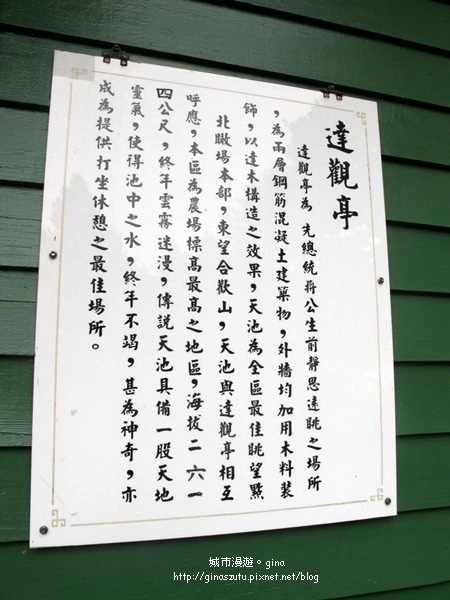 達觀亭
達觀亭為 先總統蔣公生前靜思遠眺之場所
，為兩層鋼筋混凝土建築物，外牆均加用木料裝
飾，以達木構造之效果，天池為全區最佳眺望點
北瞰場本部，東望合歡山，天池與達觀亭相互
呼應，本區為農場標高最高之地區，海拔二六一
四公尺，終年雲霧迷漫，傳說天池具備一股天地
靈氣，使得池中之水，終年不竭，甚為神奇，亦
成為提供打坐休憩之最佳場所。
城市漫遊。gina
http://ginaszutu.pixnet.net/blog